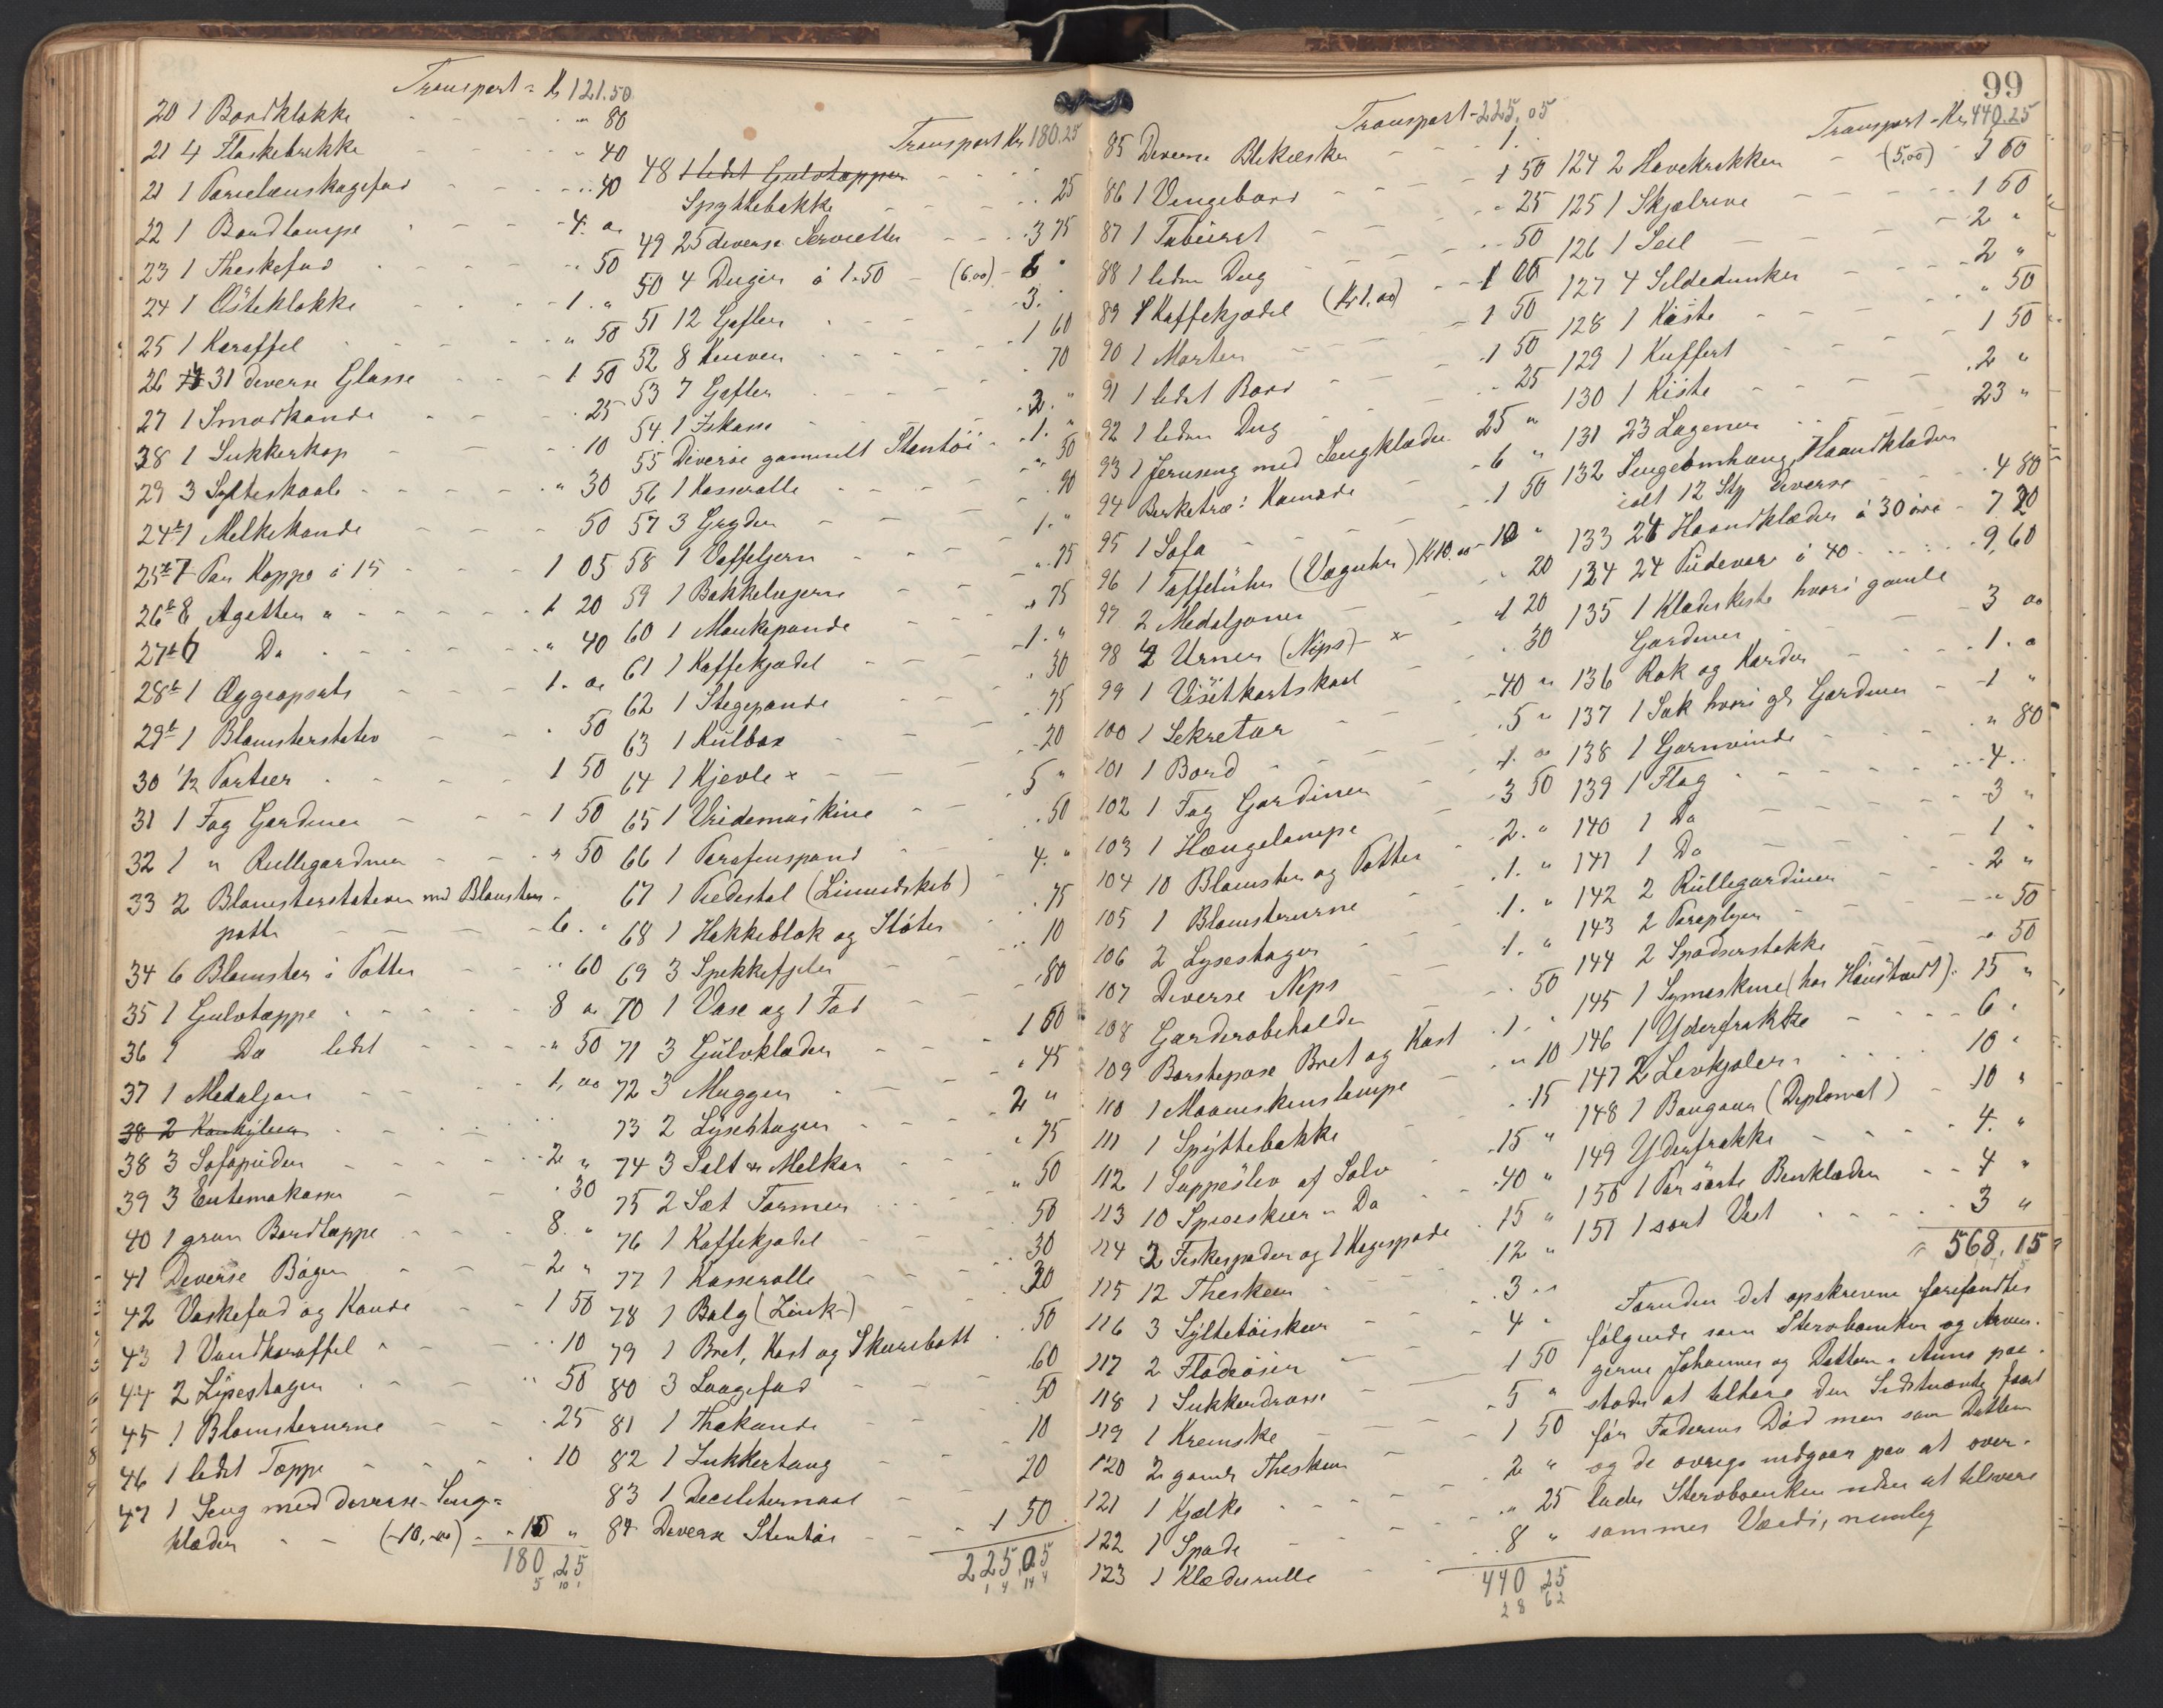 Transport = Kr 121.50
20 1 Bordklokke - - - " 80
21 4 Flaskebrikke - - " 40
21 1 Porcelænskagefad - - - " 40
22 1 Bordlampe - - - 4. oo
23 1 Theskefad - - - " 50
24 1 Osteklokke - - - 1. "
25 1 Karaffel - - - " 50
26 31 diverse Glasse - - - 1 50
27 1 Smørkande - - - 25
28 1 Sukkerkop - - - 10
29 3 Sylteskaale - - - " 30
24b 1 Melkekande - - - 50
25b 7 Par Koppe á 15 - - - 1 05
26b 8 Agetter " - - - 1 20
27b 6 Do - - - " 40
28b 1 Æggeopsats - - - 1. oo
29b 1 Blomsterstativ - - - 50
30 1/2 Portier - - - 1 50
31 1 Fag Gardiner - - - 1 50
32 1 " Rullegardiner - - - " 50
33 2 Blomsterstativer med Blomster-
potte - - - 6. "
34 6 Blomster i Potter - - - " 60
35 1 Gulvtæppe - - - 8 oo
36 1 Do lidet - - - " 50
37 1 Medaljon - - - 1, oo
38 2 Konkylier
38 3 Sofapuder - - - 2 "
39 3 Entemakasser - - - 30
40 1 grøn Bordtæppe - - - 8. "
41 Diverse Bøger - - - 2 "
42 Vaskefad og Kande - - - 1 50
43 1 Vandkaraffel - - - 10
44 2 Lysestager - - - " 50
45 1 Blomsterurne - - - 25
46 1 lidet Tæppe - - - 10
47 1 Seng med diverse Seng=
klæder - - (10,oo) - - 10 "
180,25
Transport Kr 180.25
48 1 lidet Gulvtæppe
Spyttebakke - - - 25
49 25 diverse Servietter - - - 3 75
50 4 Duger á 1.50 - (6.oo) - 6 "
51 12 Gafler - - - 3. "
52 8 Kniver - - - 1 60
53 7 Gafler - - - 70
54 1 Iskasse - - - 2. "
55 Diverse gammelt Stentöi - 1. "
56 1 Kasserolle - - - " 50
57 3 Gryder - - - 90
58 1 Vaffeljern - - - 1. "
59 1 Bakkelsejern - - - " 25
60 1 Munkepande - - - " 75
61 1 Kaffekjedel - - - 1. "
62 1 Stegepande - - - 30
63 1 Kulbox - - - 75
64 1 Kjevle x - - - 20
65 1 Vridemaskine - - - 5 "
66 1 Parafinspand - - - 50
67 1 Piedestal (Linnedskab) - 4. "
68 1 Hakkeblok og Stöter - 75
69 3 Spekkefjeler - - - 10
70 1 Vase og 1 Fad - - - 80
71 3 Gulvklæder - - - 1 60
72 3 Mugger - - - " 45
73 2 Lysestager - - - 2 "
74 3 Salt & Melkar - - - " 75
75 2 Sæt Former - - - " 50
76 1 Kaffekjedel - - - 50
77 1 Kasserolle - - - 30
78 1 Balg (Zink-) - - - 30
79 1 Bret, Kost og Skurebøtt - 50
80 3 Laagefad - - - 60
81 1 Thekande - - - 50
82 1 Sukkertang - - - 10
83 1 Decilitermaal - - - 20
84 Diverse Stentöi - - - 1 50
225,05
Transport - 225,05
85 Diverse Blikæsker - - - 1.
86 1 Vingebord - - - 1 50
87 1 Taburet - - - " 25
88 1 liden Dug - - - 50
89 1 Kaffekjedel (Kr 1,oo) - - 1 00
90 1 Morter - - - 1 50
91 1 lidet Bord - - - 1 50
92 1 liden Dug - - - 25
93 1 Jernseng med Sengklæder 25 "
94 Birketræ: Komode - 6 "
95 1 Sofa - - - 1 50
96 1 Taffeluhr (Væguhr) Kr 10.oo - 10 "
97 2 Medaljoner - - - 20
98 2 Urner (Nips) - x - 1 20
99 1 Visitkortskaal - - - 30
100 1 Sekretær - - - 40 "
101 1 Bord - - - 5 "
102 1 Fag Gardiner - - - 1. oo
103 1 Hængelampe - - - 3 50
104 10 Blomster og Potter - 2. "
105 1 Blomsterurne - - - 1. "
106 2 Lysestager - - - 1. "
107 Diverse Nips - - - 1. "
108 Garderobeholder - - - 50
109 Børstepose Bret og Kost 1. "
110 1 Maaneskinslampe - - " 10
111 1 Spyttebakke - - - 15
112 1 Suppeslev af Sølv - 15 "
113 10 Spiseskeer " Do - 40 "
114 2 Fiskespader og 1 Kagespade 15 "
115 12 Theskeer - - - 12 "
116 3 Syltetöiskeer - - - 3 "
117 2 Flødeöser - - - 4 "
118 1 Sukkerdrosse - - - 1 50
119 1 Kremske - - - 5 "
120 2 gamle Theskeer - - - 1 50
121 1 Kjælke - - - 2 "
122 1 Spade - - - " 25
123 1 Klæderulle - - - 8 "
440,25
99
Transport - Kr 440.25
124 2 Havekrakker - (5,oo) - 5 00
125 1 Skjelrive - - - 1 50
126 1 Seil - - - 2 "
127 4 Sildedunker - - - 2 "
128 1 Kiste - - - " 50
129 1 Kuffert - - - 1 50
130 1 Kiste - - - 2 "
131 23 Lagener - - - 23 "
132 Sengeomhæng, Haandklæder
ialt 12 Stk diverse - - - 4 80
133 24 Haandklæder á 30 øre - 7 20
134 24 Pudevar á 40 - - - 9,60
135 1 Klædeskiste hvori gamle
Gardiner - - - 3 oo
136 Rok og Karder - - - 1. o
137 1 Sæk hvori gl. Gardiner - 1 "
138 1 Garnvinde - - - " 80
139 1 Flag - - - 4. "
140 1 Do - - - 3 "
141 1 Do - - - 1 "
142 2 Rullegardiner - - - 2 "
143 2 Paraplyer - - - " 50
144 2 Spadserstokke - - - " 50
145 1 Symaskine (hos Haustvedt) 15 "
146 1 Yderfrakke - - - 6 "
147 2 Livkjoler - - - 10 "
148 1 Bongour (Diplomat) - 10 "
149 Yderfrakke - - - 4. "
150 1 Par sorte Benklæder - - 4 "
151 1 sort Vest - - - 3 "
568,15
Foruden det opskrevne forefandtes
følgende som Stervboenken og Arvin-
gerne Johannes og Datteren Anna paa-
stoder at tilhøre den Sidstnævnte faaet
før Faderens Död men som Datteren
og de øvrige indgaar paa at over-
lader Stervboenken uden at tilsvare
sammes Værdi, nemlig